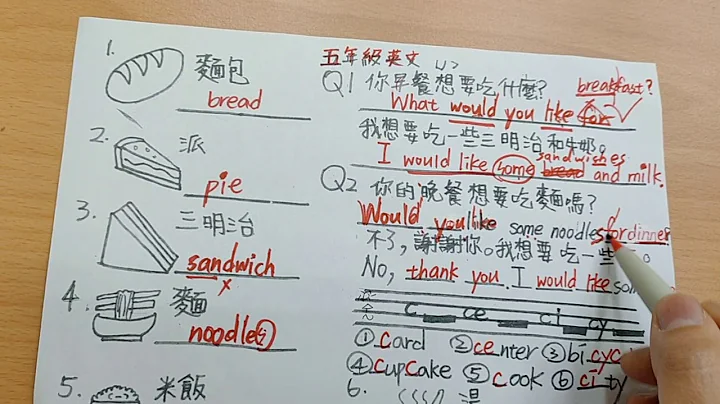 1. 麵包
bread
2. 派
pie
3. 三明治
sandwich
x
4. 麵
noodles
5. 米飯
五年級英文
Q1 你早餐想要吃什麼?
What would you like for breakfast?
我想要吃一些三明治和牛奶。
I would like some sandwishes bread and milk.
Q2 你的晚餐想要吃麵嗎?
Would you like some noodles for dinner
不了,謝謝你。我想要吃一些
No, thank you. I would like so
c ce ci cy
①card ②center ③bicyc
④cupcake ⑤cook ⑥city
6. 湯